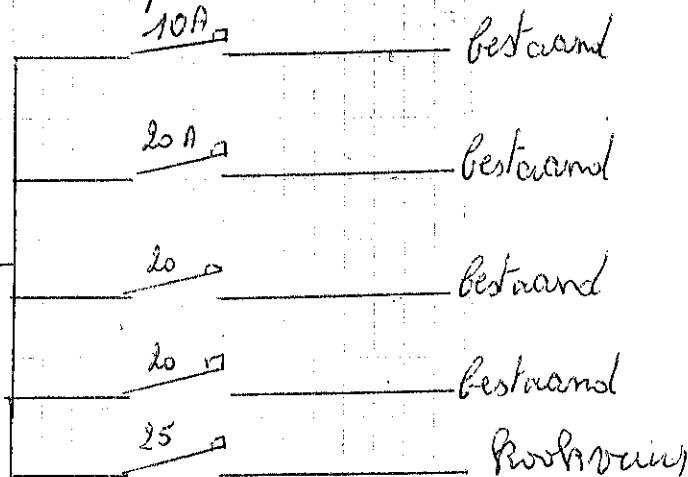 10A bestaand
20A bestaand
20 bestaand
20 bestaand
25 kookvuur